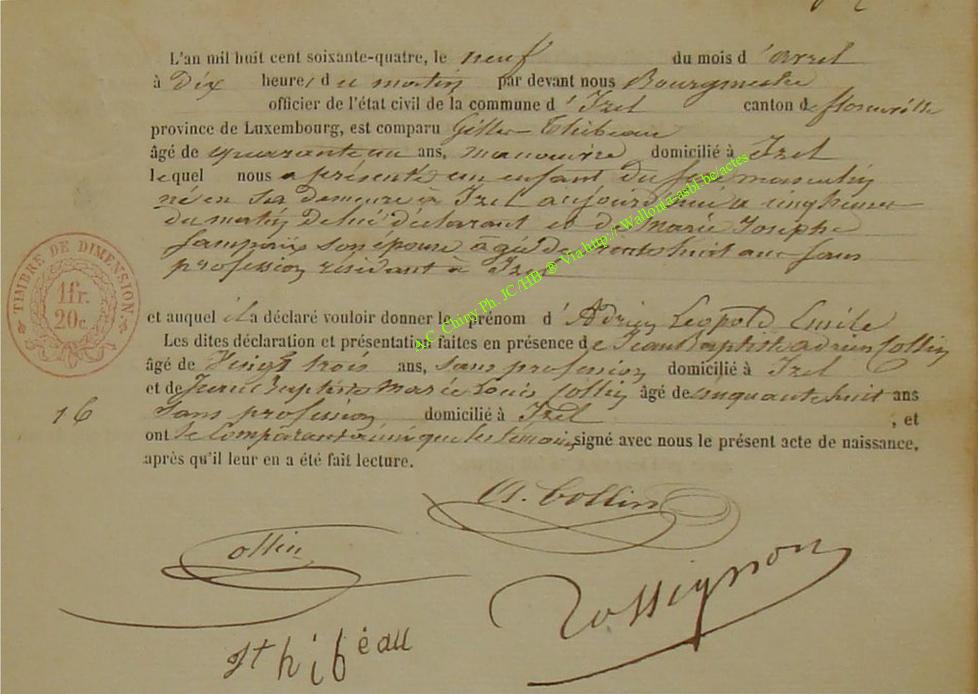 L'an mil huit cent soixante-quatre, le neuf du mois d'avril
à Dix heures du matin par devant nous Bourgmestre
officier de l'état civil de la commune d'Izel canton de florenville
province de Luxembourg, est comparu Gilles Thibeau
âgé de quarante un ans, manouvrier domicilié à Izel
lequel nous a présenté un enfant du sexe masculin
né en sa demeure à Izel aujourd'hui à cinq heures
du matin de lui déclarant et de Marie Josephe
son épouse âgée de trente huit ans sans
profession résidant à Izel
TIMBRE DE DIMENSION
1fr.
20c.
et auquel il a déclaré vouloir donner le prénom d'Adrien Léopold Emile
Les dites déclaration et présentation faites en présence de Jean Baptiste adrien Collin
âgé de Vingt trois ans, sans profession domicilié à Izel
et de Jean Baptiste Marie Louis Collin âgé de cinquante huit ans
16 sans profession domicilié à Izel , et
ont le Comparant ainsi que les témoins, signé avec nous le présent acte de naissance,
après qu'il leur en a été fait lecture.
A. Collin
Collin
Rossignon
thibéau
A.C. Chiny Ph. JC/HB ® Via http://Wallonia-asbl.be/actes